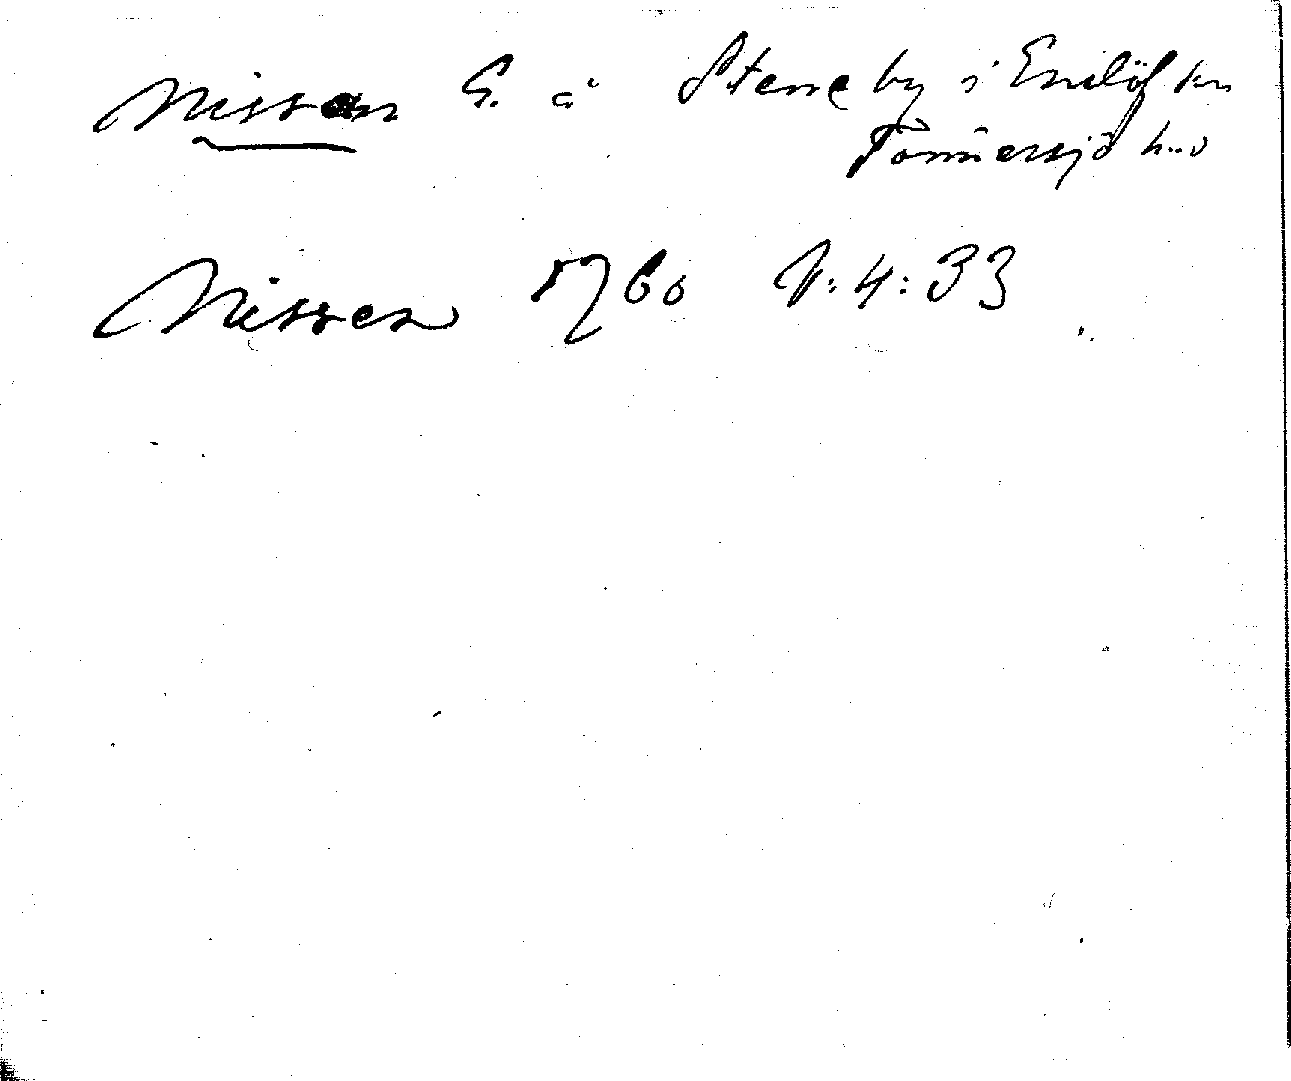 Nissen G. å Steneby i Enslöf sn
Tönnersjö hd
Nissen 1760 V:4:33